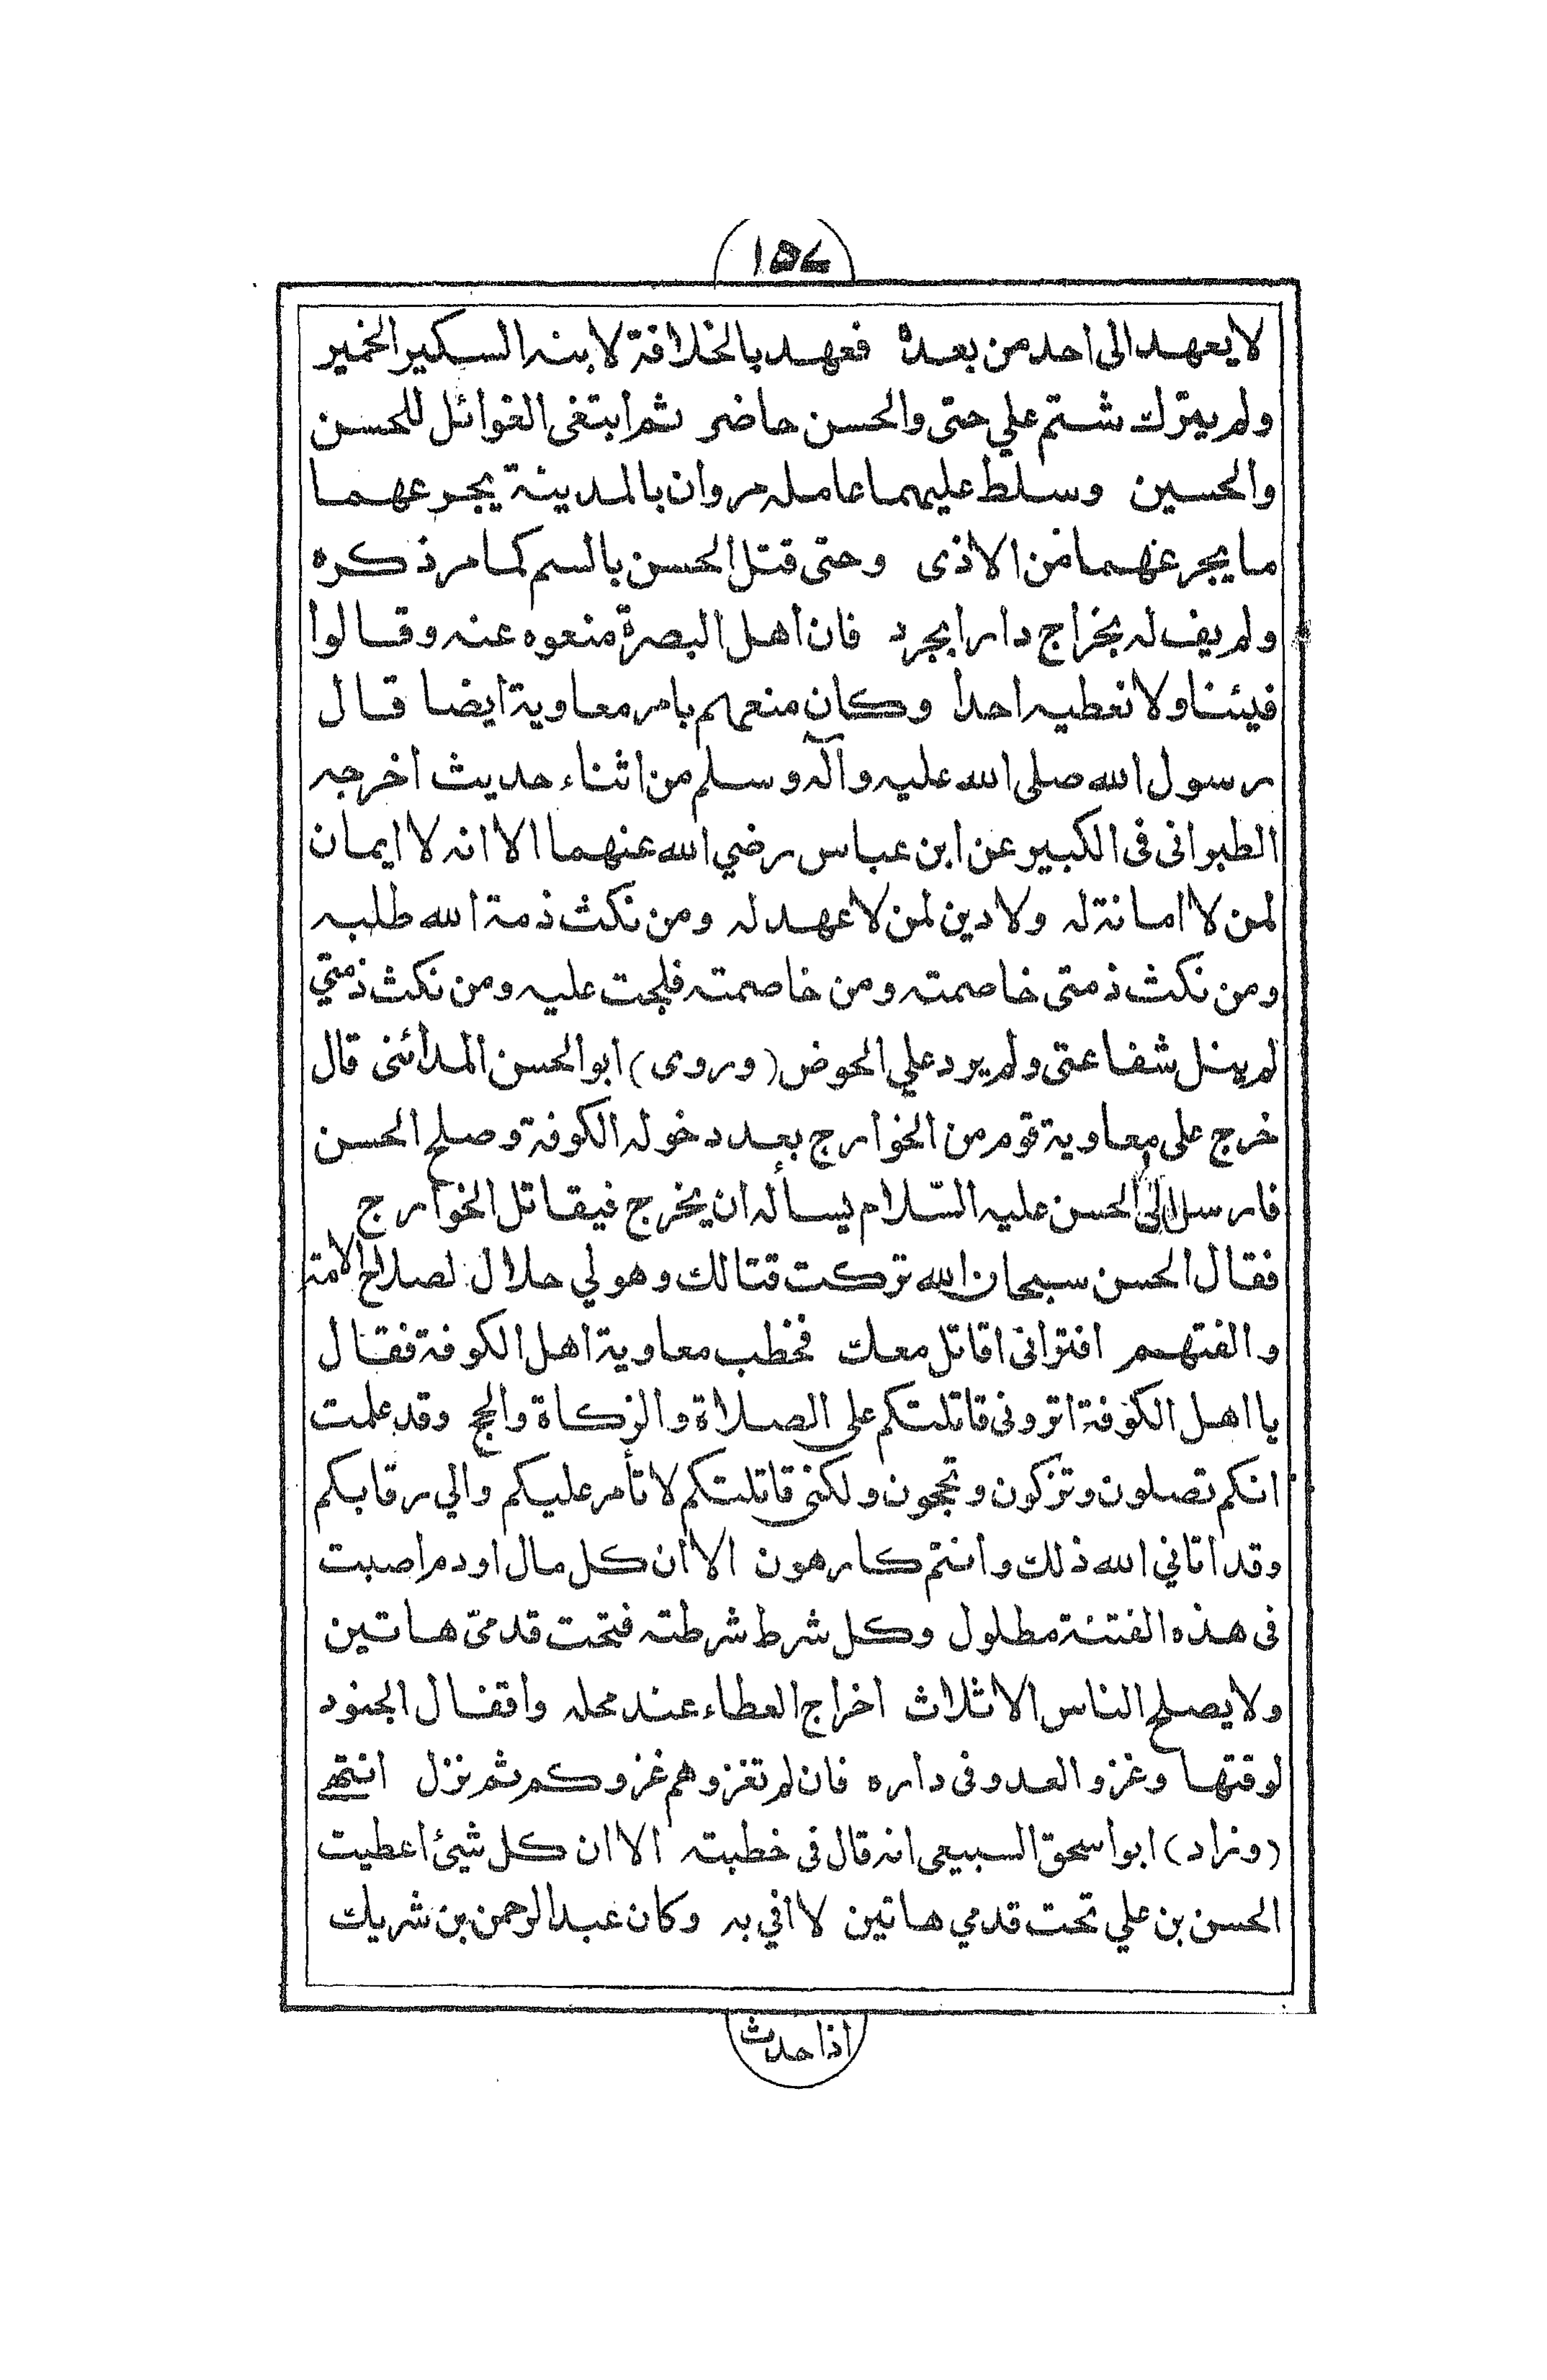 ١٥٧
لا يعهد الى احد من بعده فعهد بالخلافة لابنه السكير الخمير
ولم يترك شتم علي حتى والحسن حاضر ثم ابتغى الغوائل للحسن
والحسين وسلط عليهما عامله مروان بالمدينة يجرعهما
ما يجرعهما من الاذى وحتى قتل الحسن بالسم كما مر ذكره
ولم يف له بخراج دارابجرد فان اهل البصرة منعوه عنه وقالوا
فيئنا ولا نعطيه احدا وكان منعهم بامر معاوية ايضا قال
رسول الله صلى الله عليه وآله وسلم من اثناء حديث اخرجه
الطبرانى فى الكبير عن ابن عباس رضي الله عنهما الا انه لا ايمان
لمن لا امانة له ولا دين لمن لا عهد له ومن نكث ذمة الله طلبه
ومن نكث ذمتى خاصمته ومن خاصمته فلجت عليه ومن نكث ذمتي
لم ينل شفاعتى ولم يرد علي الحوض (وروى) ابو الحسن المدائنى قال
خرج على معاوية قوم من الخوارج بعد دخوله الكوفة وصلح الحسن
فارسل الى الحسن عليه السّلام يسأله ان يخرج فيقاتل الخوارج
فقال الحسن سبحان الله تركت قتالك وهو لي حلال لصلاح الامة
والفتهم افترانى اقاتل معك فخطب معاوية اهل الكوفة فقال
يا اهل الكوفة اترونى قاتلتكم على الصلاة والزكاة والحج وقد علمت
انكم تصلون وتزكون وتحجون ولكنى قاتلتكم لاتأمر عليكم والي رقابكم
وقد اتاني الله ذلك وانتم كارهون الا ان كل مال او دم اصبت
فى هذه الفتنة مطلول وكل شرط شرطته فتحت قدميّ هاتين
ولا يصلح الناس الا ثلاث اخراج العطاء عند محله واقفال الجنود
لوقتها وغزو العدو فى داره فان لم تغزوهم غزوكم ثم نزل انتهى
(وزاد) ابو اسحق السبيعى انه قال فى خطبته الا ان كل شيئ اعطيت
الحسن بن علي تحت قدمي هاتين لا افي به وكان عبد الرحمن بن شريك
اذا حدث